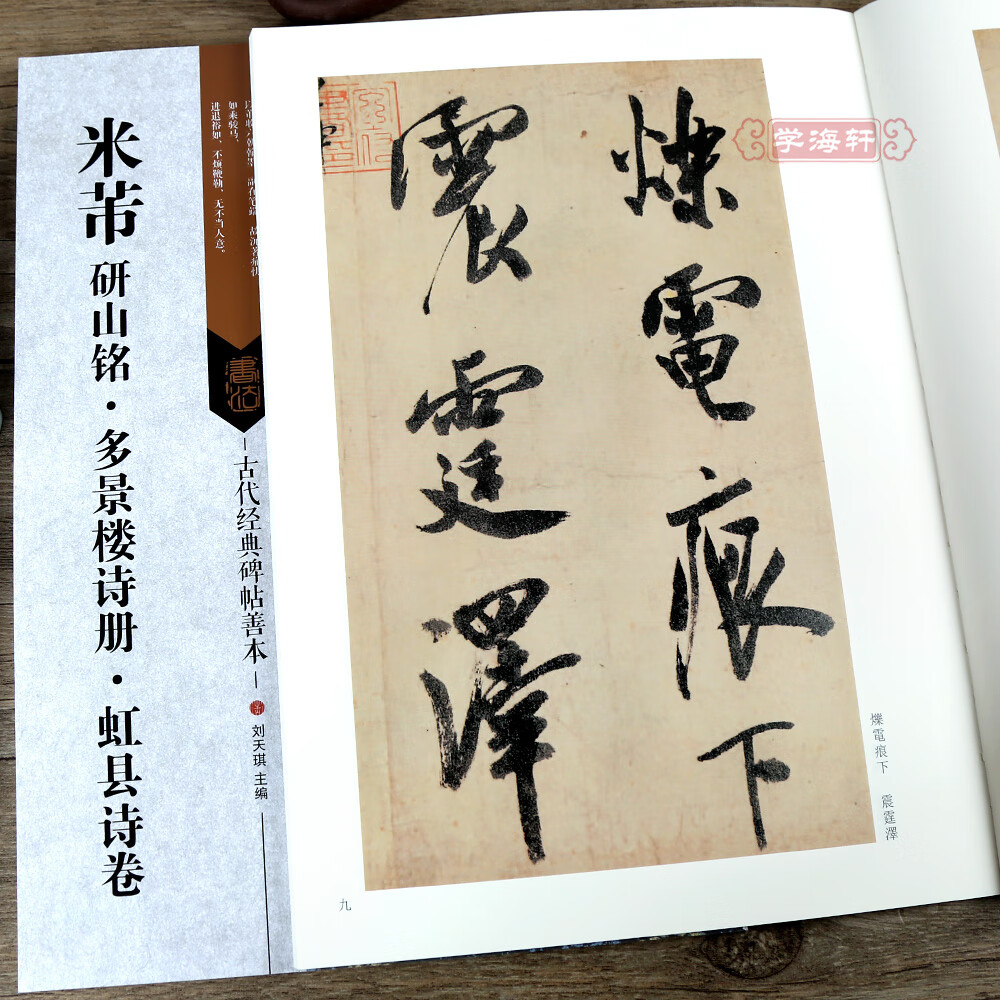 米芾 研山铭·多景楼诗册·虹县诗卷
如乘骏马，
进退裕如，不烦鞭勒，无不当人意。
書法
古代经典碑帖善本
刘天琪 主编
学海轩
爍電痕下
震霆澤
爍電痕下 震霆澤
九